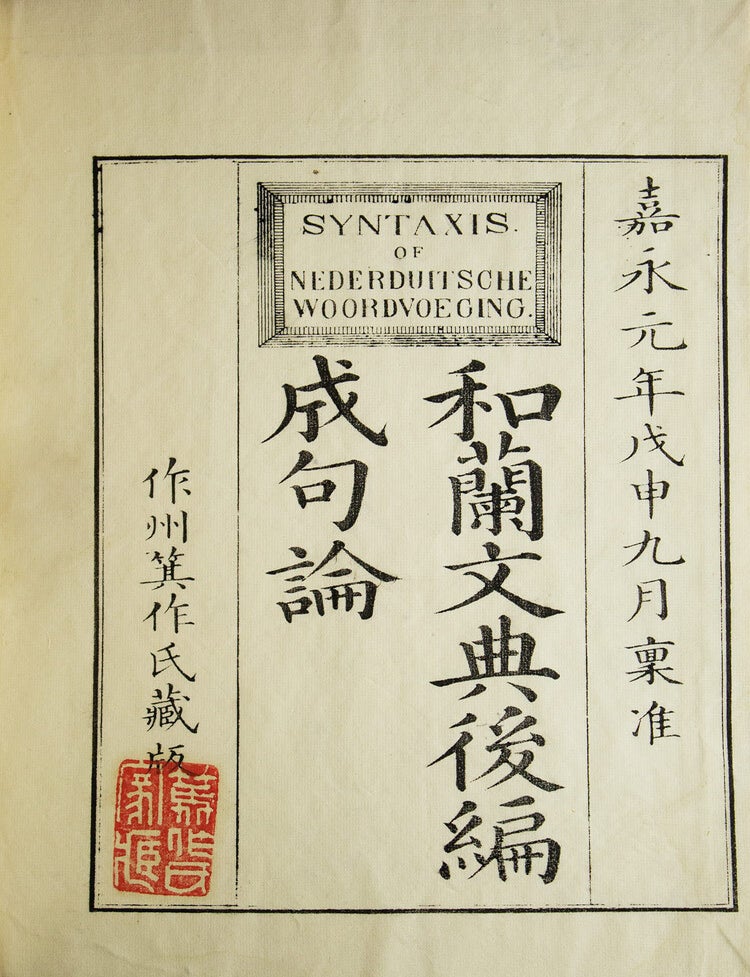 嘉永元年戊申九月稟准
SYNTAXIS.
OF
NEDERDUITSCHE
WOORDVOEGING.
和蘭文典後編
成句論
作州箕作氏藏版